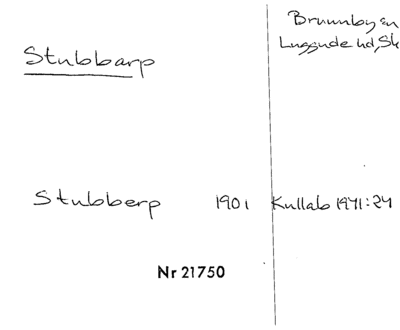 Brunnby sn
Stubbarp
Luggude hd, Sk
Stubberp 1901 Kullab 1971:24
Nr 21750